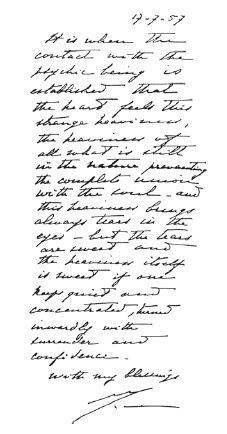 17-7-57
It is when the
contact with the
psychic being is
established that
the heart feels this
strange heaviness,
the heaviness of
all what is still
in the nature preventing
the complete union
with the soul - and
this heaviness brings
always tears in the
eyes - but the tears
are sweet and
the heaviness itself
is sweet if one
keeps quiet and
concentrated, turned
inwardly with
surrender and
confidence -
with my blessings